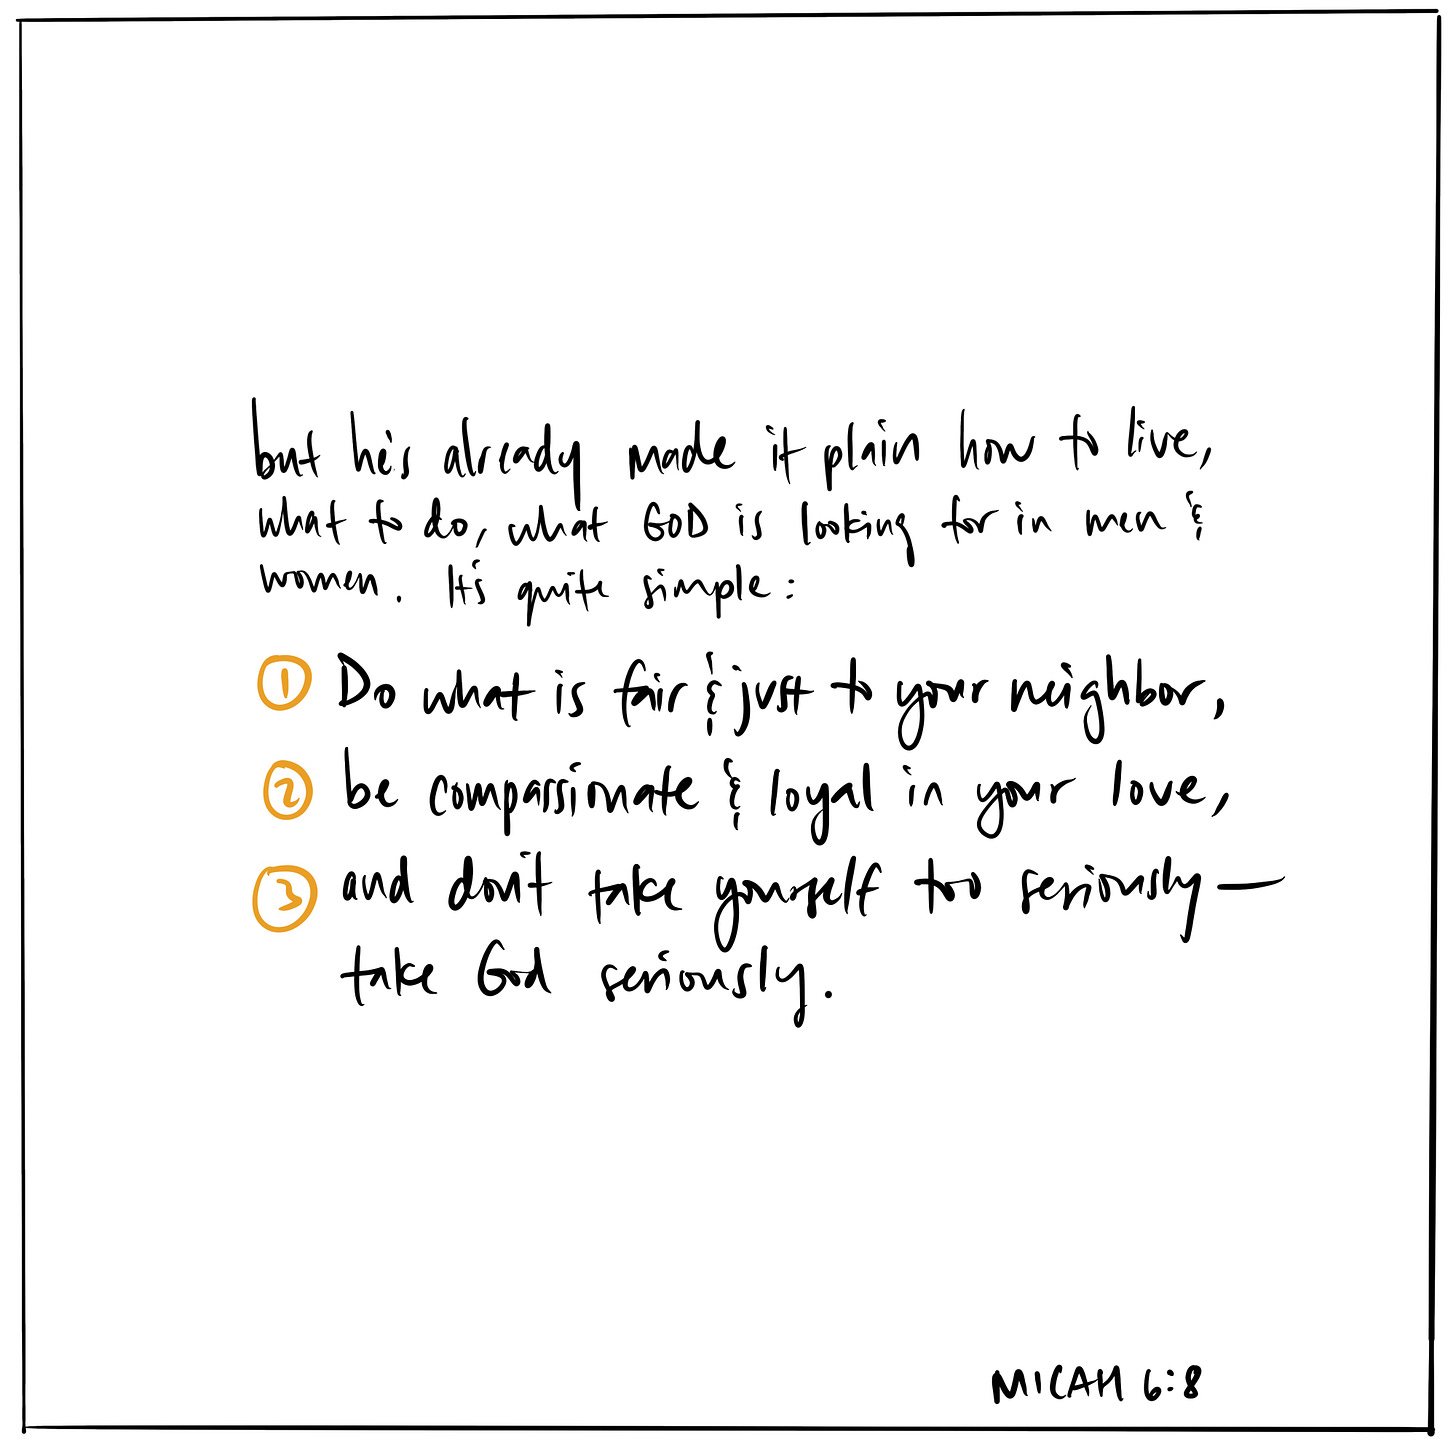 but he's already made it plain how to live,
what to do, what GOD is looking for in men &
women. It's quite simple:
① Do what is fair & just to your neighbor,
② be compassionate & loyal in your love,
③ and don't take yourself too seriously—
take God seriously.
MICAH 6:8